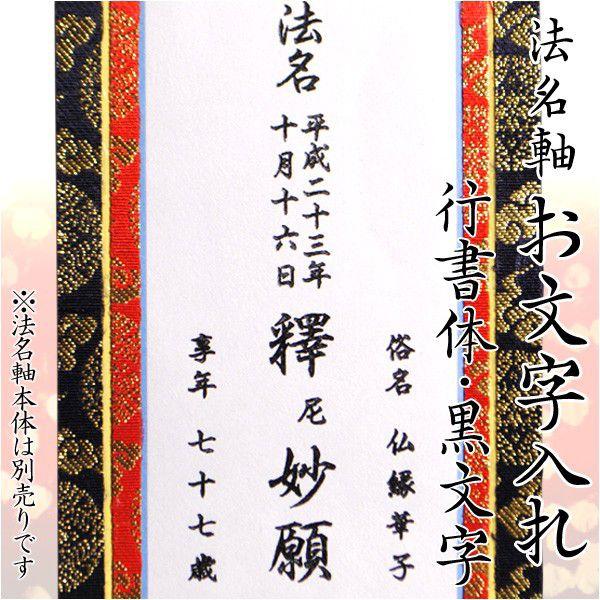 法名軸
お文字入れ
行書体・黒文字
法名
平成二十三年
十月十六日
釋尼妙願
俗名 仏縁華子
享年 七十七歳
※法名軸本体は別売りです